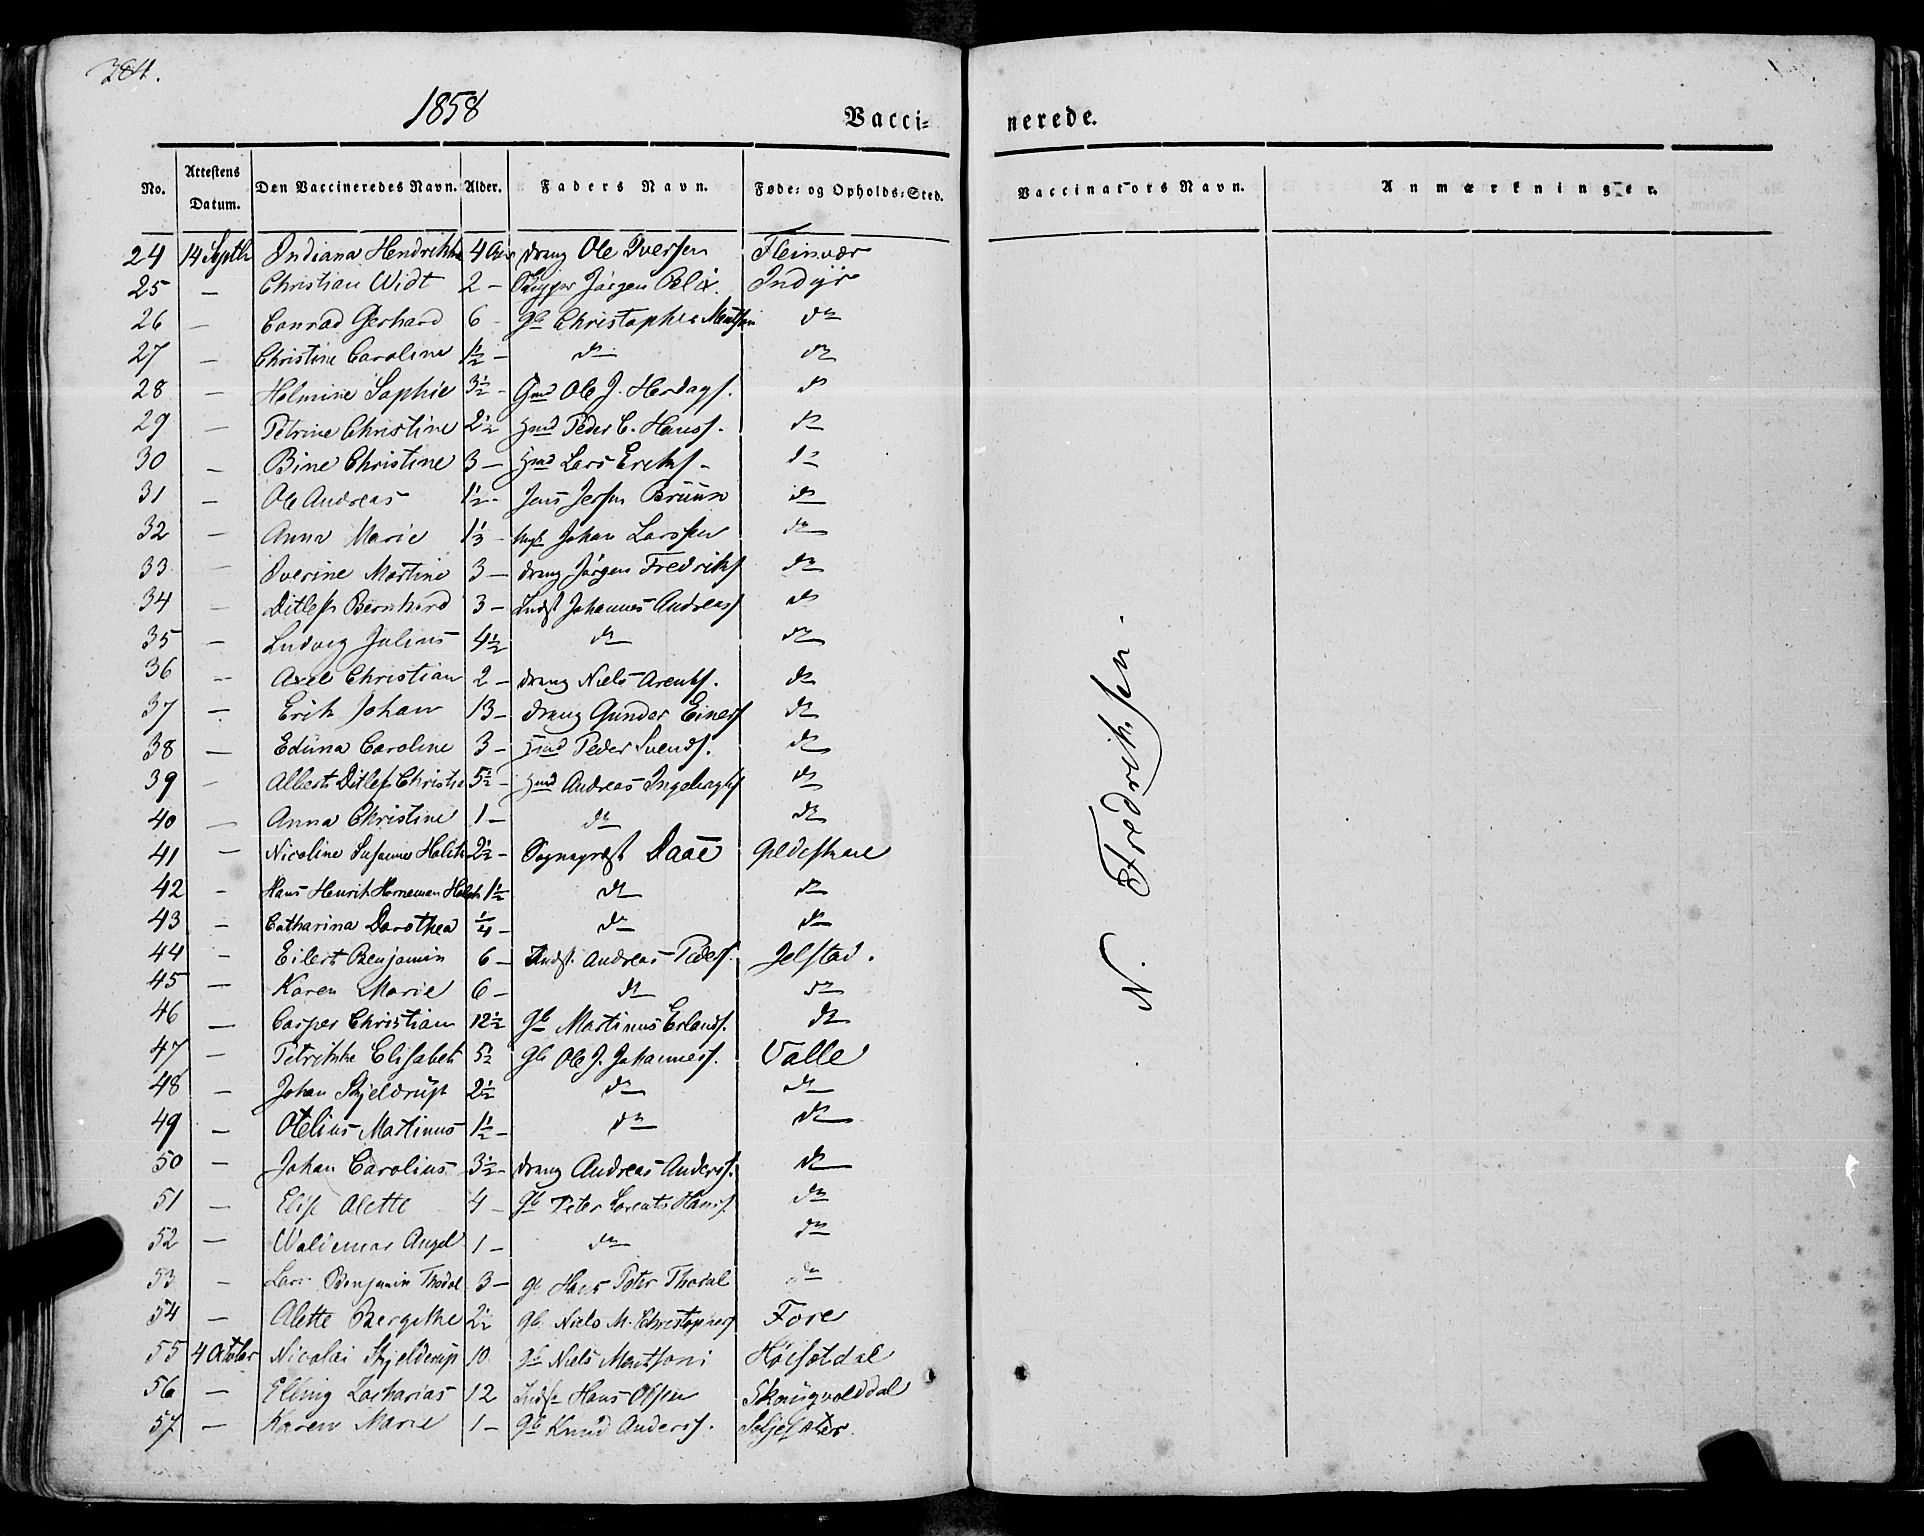 384.
1858
Vacci- nerede.
No. Attestens Datum. Den Vaccineredes Navn. Alder. Faders Navn. Føde- og Opholds-Sted. Vaccinators Navn. Anmærkninger.
24 14 Septbr Indiana Hendrikke 4 Aar dreng Ole Iversen Fleinvær
25 — Christian Widt 2 — Skipper Jörgen Indyr
26 — Conrad Gerhard 6 - gb Christopher Mentsen do
27 — Christine Caroline 1½ — do do
28 — Helmine Sophie 3½ - Gmd Ole J. Herdags. do
29 — Petrine Christine 2½ Hmd Peder C. Hanss. do
30 — Bine Christine 3 — Hmd Lars Eriks. do
31 — Ole Andreas 1½ - Jens Jensen Bruun do
32 — Anna Marie 1⅓ - Johan Larssen do
33 — Iverine Martine 3 — dreng Jörgen Fredriks do
34 — Ditlef Bernhard 3 — Indst Johannes Andreas do
35 — Ludvig Julius 4½ do do
36 — Axel Christian 2 — dreng Niels Arents. do
37 — Erik Johan 13 — dreng Gunder Einers do
38 — Eduna Caroline 3 — Hmd Peder Svends. do
39 — Albert Ditlef Christian 5½ — Hmd Andreas Ingebrigts do
40 — Anna Christine 1 — do do
41 — Nicoline Susanne Holck 2½ — Sognepræst Daae Gildeskaal
42 - Hans Henrik Horneman Holck 1½ do do
43 - Catharina Dorothea ¼ — do do
44 — Eilert Benjamin 6 — Indst. Andreas Peders. Jelstad.
45 — Karen Marie 6 — do do
46 — Casper Christian 12½ gb Martinus Erlands. do
47 — Petrikke Elisabeth 5½ gb Ole J. Johanness. Valle
48 — Johan Skjeldrup 2½ do do
49 — Otelius Martinus 1½ — do do
50 — Johan Carolius 3½ — dreng Andreas Anders. do
51 — Elise Alette 4 — gb Peter Lorents Hanss. do
52 — Waldemar Angel 1 — do do
53 — Lars Benjamin Thodal 3 — gb Hans Peter Thodal do
54 — Alette Bergithe 2½ gb. Niels M. Christophers Fore
55 4 Octobr Nicolai Skjelderup 10 gb Niels Mentsoni
56 — Elling Zacharias 12 Indst Hans Olsen Skaugvolddal
57 — Karen Marie 1 — gb Knud Anderss.
N. Fredriksen.